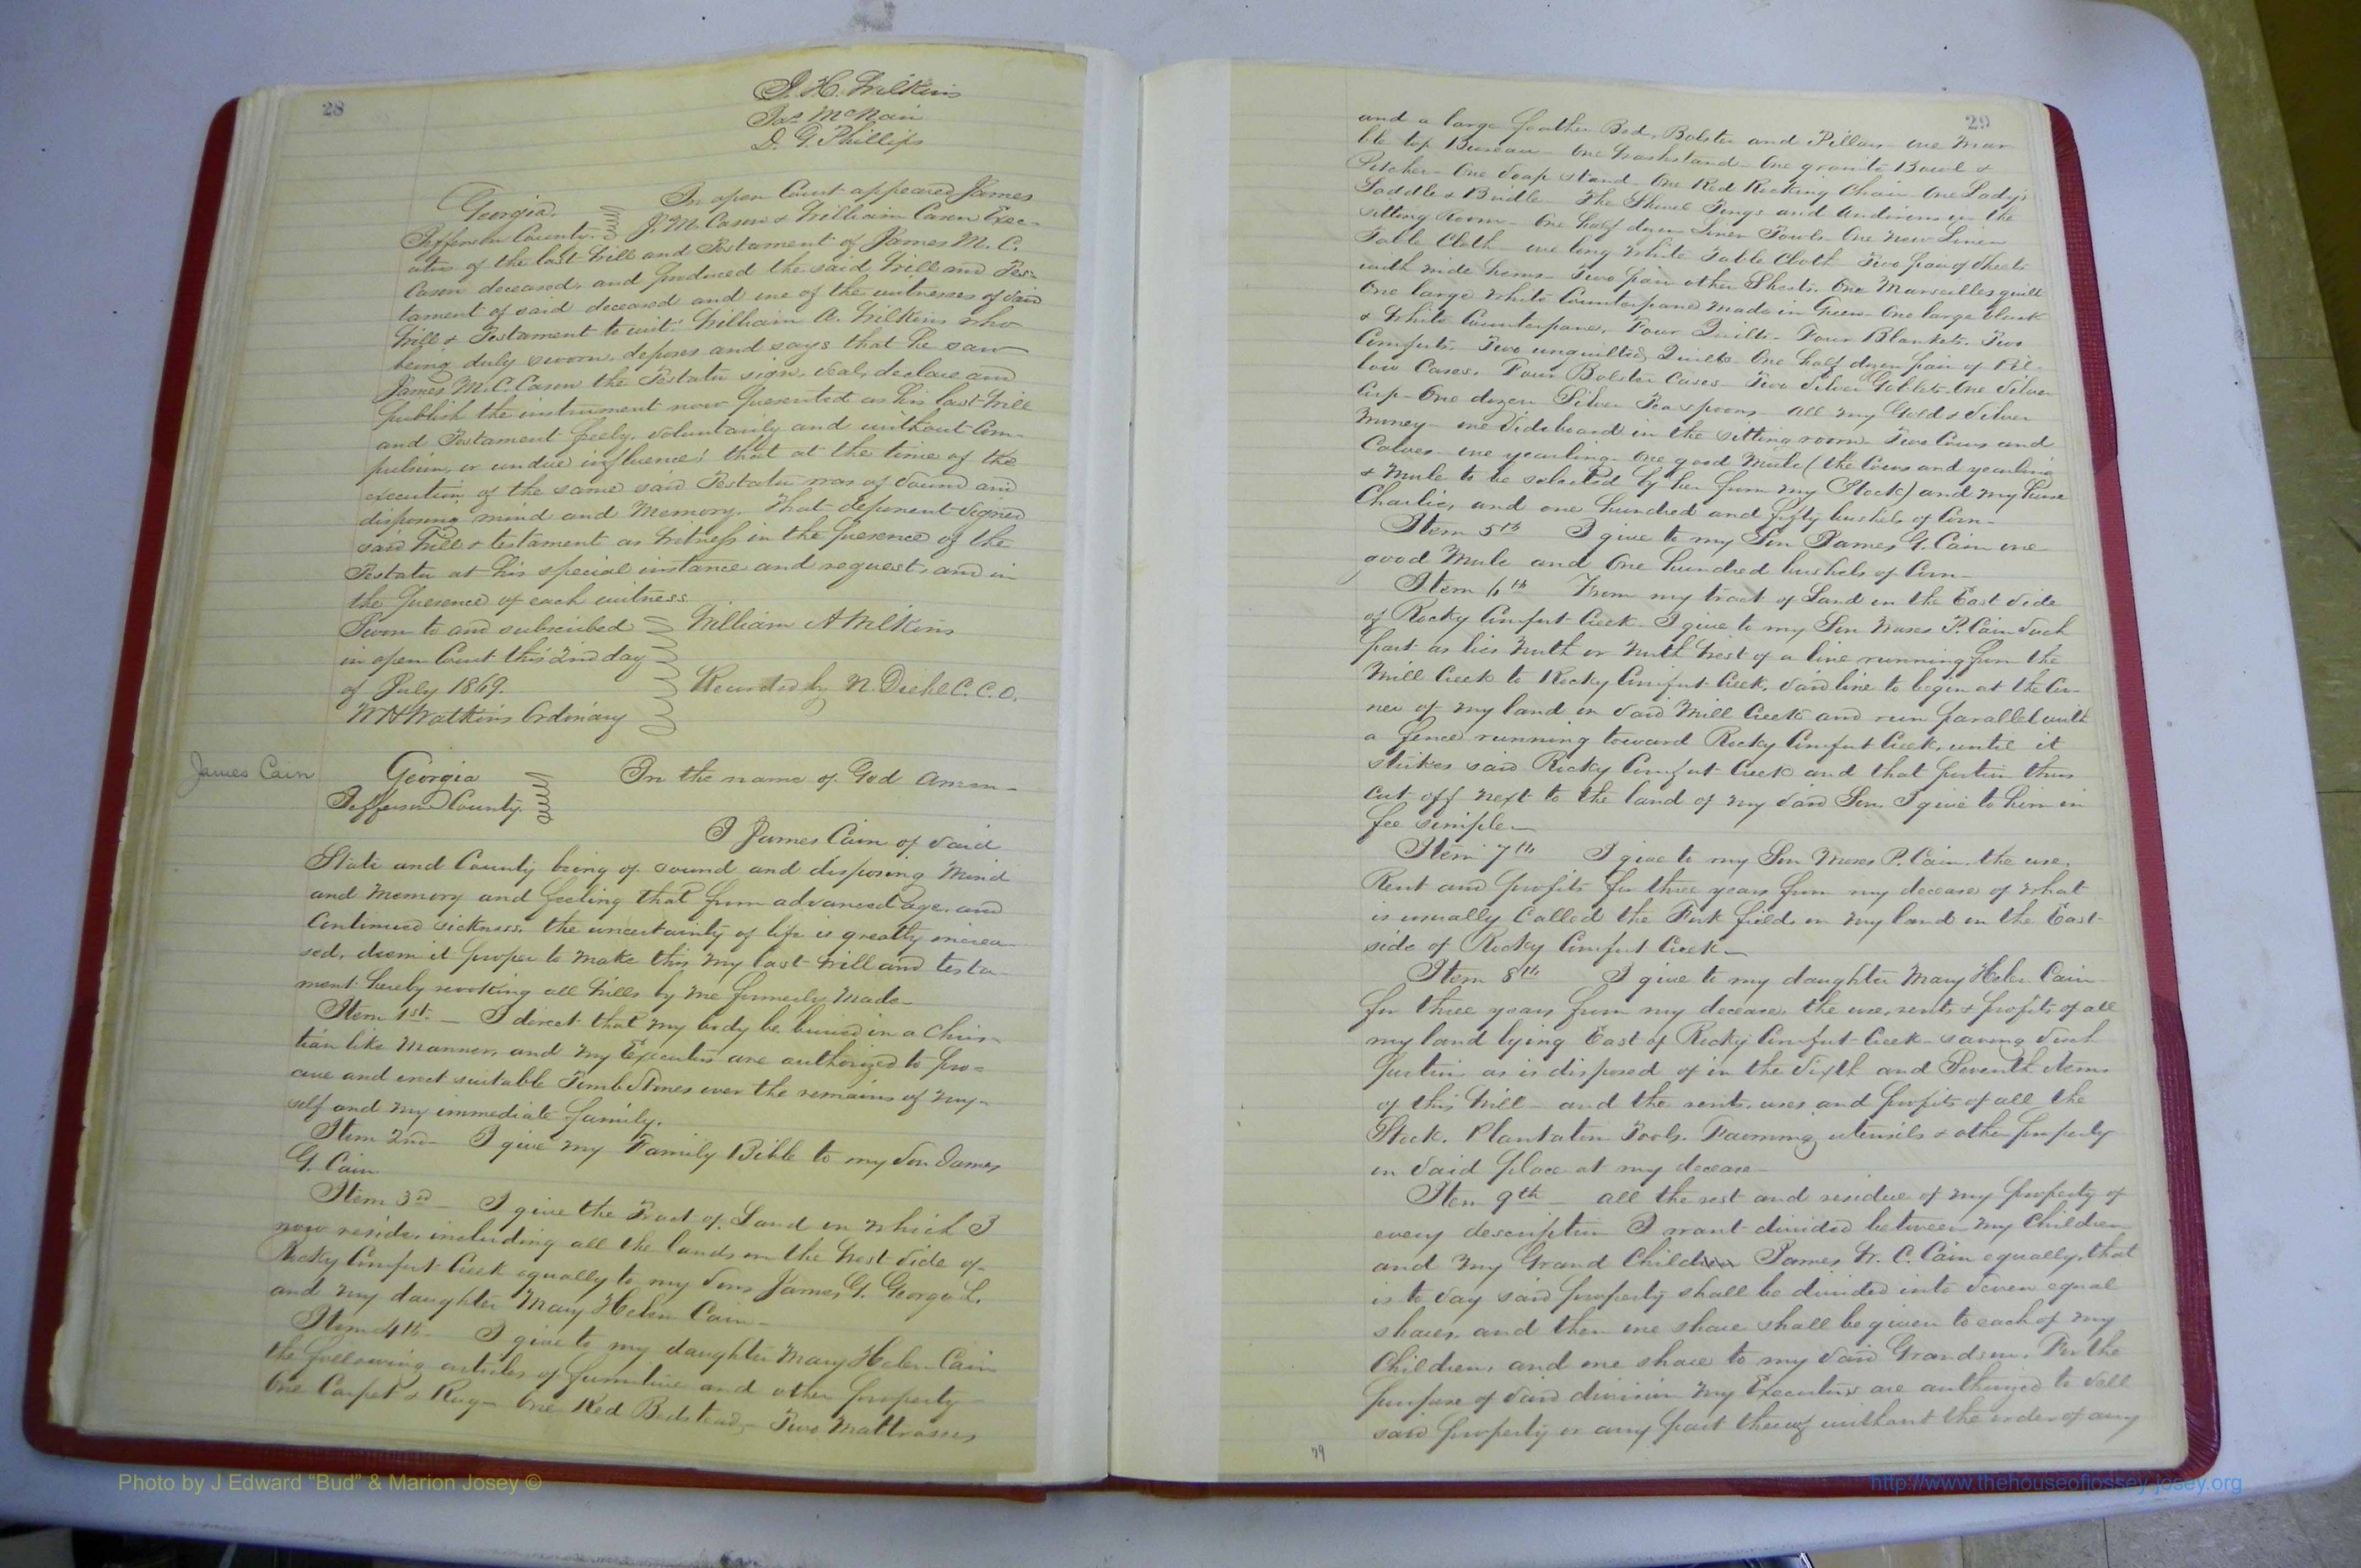 28
J. H. Wilkins
Jas McNair
D. G. Phillips
Georgia.
Jefferson County.
In open Court appeared James
J. M. Cason & William Cason Exec-
utors of the last Will and Testament of James M. C.
Cason deceased, and produced the said Will and Tes-
tament of said deceased and one of the witnesses of said
Will & Testament to wit: William A. Wilkins who
being duly sworn, deposes and says that he saw
James M. C. Cason the Testator sign, seal, declare and
publish the instrument now presented as his last Will
and Testament freely, voluntarily and without Com-
pulsion, or undue influence; that at the time of the
execution of the same said Testator was of sound and
disposing mind and Memory. That deponent signed
said Will & testament as Witness in the presence of the
Testator at his special instance and request, and in
the presence of each witness.
Sworn to and subscribed
in open Court this 2nd day
of July 1869.
W H Watkins Ordinary
William A Wilkins
Recorded by N. Diehl C. C. O.
James Cain
Georgia
Jefferson County.
In the name of God Amen—
I James Cain of said
State and County being of sound and disposing Mind
and Memory and feeling that from advanced age, and
Continued sickness, the uncertainty of life is greatly increa-
sed, deem it proper to make this my last Will and testa-
ment hereby revoking all Wills by me formerly Made—
Item 1st. — I direct that my body be buried in a Chris-
tian like Manner, and my Executors are authorized to pro-
cure and erect suitable TombStones over the remains of my-
self and my immediate family.
Item 2nd— I give my Family Bible to my Son James
G. Cain
Item 3rd — I give the Tract of Land on which I
now reside, including all the lands on the West side of
Rocky Comfort Creek equally to my Sons James G. George L.
and my daughter Mary Helen Cain—
Item 4th— I give to my daughter Mary Helen Cain
the following articles of furniture and other property—
One Carpet & Rug— One Red Bedstead— Two Mattrasses
29
and a large feather Bed, Bolster and Pillows— one Mar
ble top Bureau— One Washstand— One granite Bowl &
Pitcher— One Soap stand— One Red Rocking Chair— One Lady's
Saddle & Bridle— The Shovel Tongs and Andirons in the
sitting Room— One half dozen Linen Towels— One new Linen
Table Cloth— one long white Table Cloth— Two pair of sheets
with wide hems— Two pair other Sheets. One Marseilles quilt
One large White Counterpane Made in Green— One large black
& White Counterpane. Four Quilts— Four Blankets. Two
Comforts. Two unquilted Quilts— One half dozen pair of Pil-
low Cases. Four Bolster Cases— Two Silver Goblets. One Silver
Cup— One dozen Silver Teaspoons— All my Gold & Silver
Money— one Sideboard in the sitting room— Two Cows and
Calves— one yearling— One good Mule (the Cows and yearling
& Mule to be selected by her from my Stock) and my horse
Charlie, and one hundred and fifty bushels of Corn—
Item 5th I give to my Son James G. Cain one
good Mule and One hundred bushels of Corn—
Item 6th From my tract of Land on the East side
of Rocky Comfort Creek. I give to my Son Moses P. Cain such
part as lies North or North West of a line running from the
Mill Creek to Rocky Comfort Creek, said line to begin at the Cor-
ner of my land on said Mill Creek and run parallel with
a fence running toward Rocky Comfort Creek, until it
strikes said Rocky Comfort Creek and that portion thus
cut off next to the land of my said Son, I give to him in
fee simple—
Item 7th I give to my Son Moses P. Cain the use,
Rent and profits for three years from my decease of what
is usually Called the Fork field on my land on the East
side of Rocky Comfort Creek—
Item 8th I give to my daughter Mary Helen Cain
for three years from my decease, the use, rents & profits of all
my land lying East of Rocky Comfort Creek— saving such
portion as is disposed of in the Sixth and Seventh items
of this Will— and the rents, uses and profits of all the
Stock, Plantation Tools. Farming utensils & other property
on said place at my decease—
Item 9th— all the rest and residue of my property of
every description I want divided between my Children
and my Grand Child James W. C. Cain equally, that
is to say said property shall be divided into seven equal
shares, and then one share shall be given to each of my
Children, and one share to my said Grandson. For the
purpose of said division my Executors are authorized to sell
said property or any part thereof without the order of any
29
Photo by J Edward "Bud" & Marion Josey ©
http://www.thehouseofjossey-josey.org